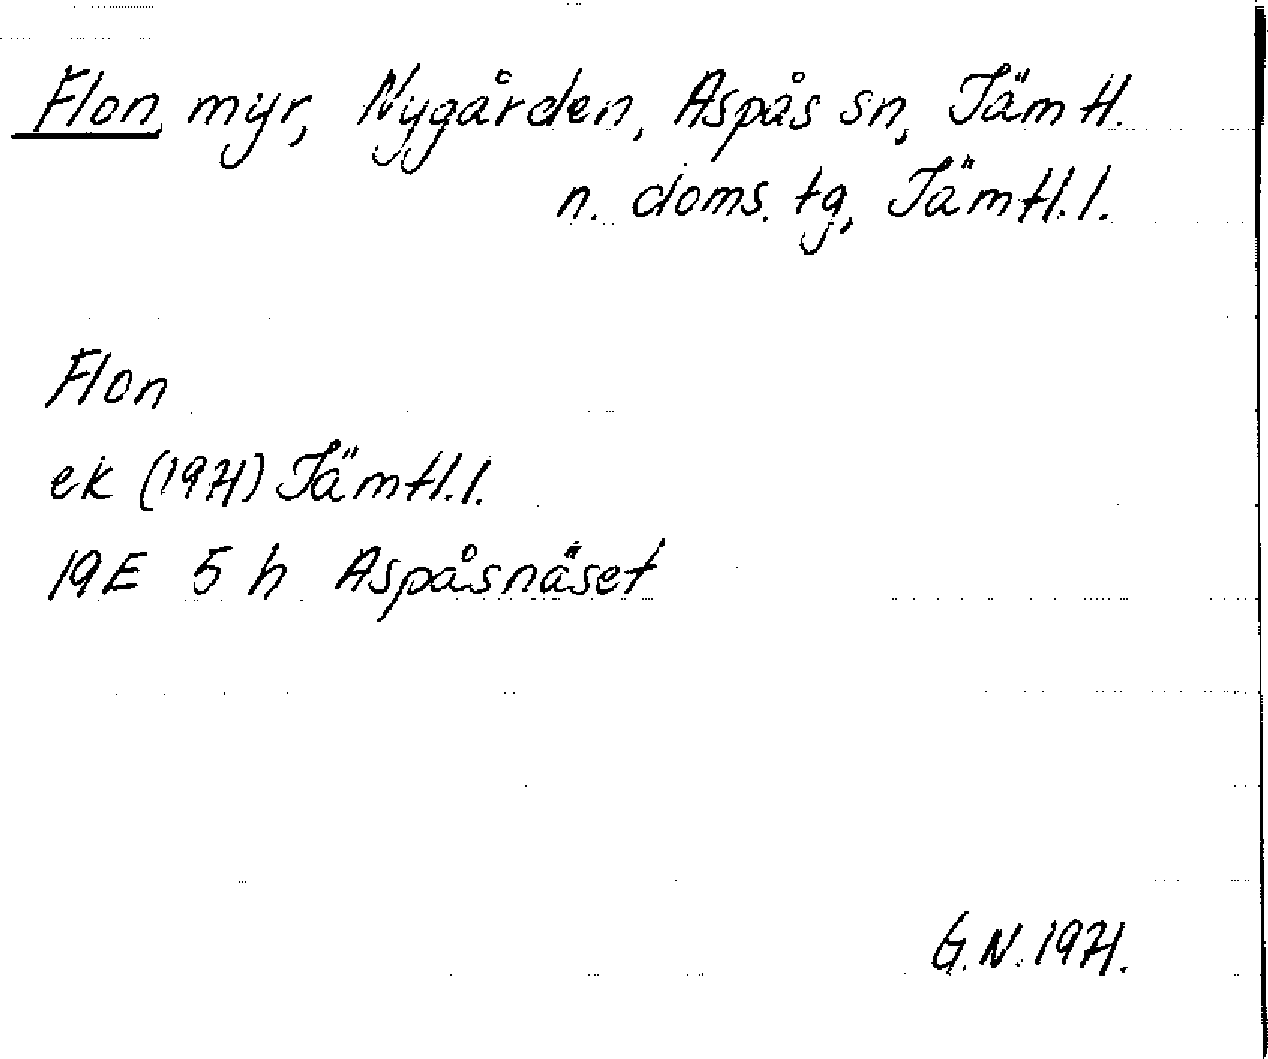 Flon, myr, Nygården, Aspås sn, Jämtl.
n. doms. tg, Jämtl. l.
Flon
ek (1971) Jämtl. l.
19E 5 h Aspåsnäset
G. N. 1971.